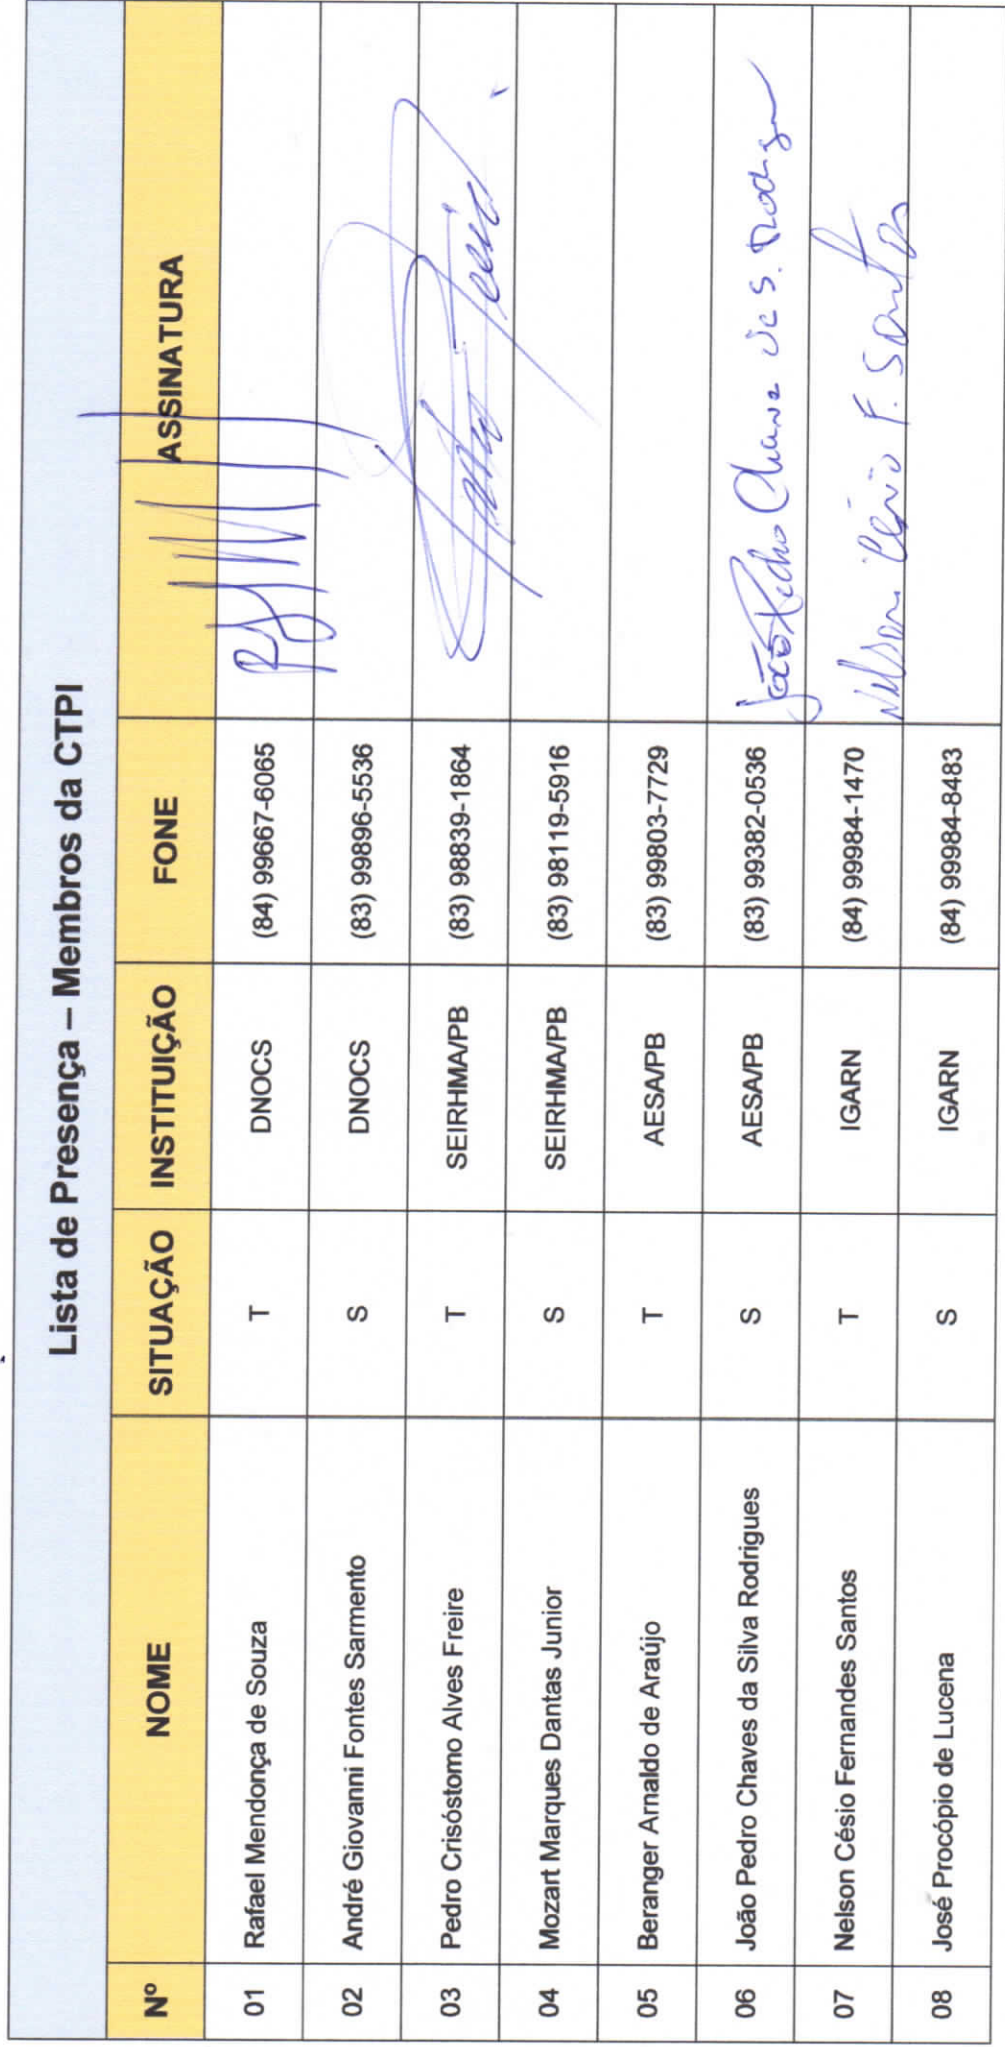 Lista de Presença – Membros da CTPI
Nº NOME SITUAÇÃO INSTITUIÇÃO FONE ASSINATURA
01 Rafael Mendonça de Souza T DNOCS (84) 99667-6065
02 André Giovanni Fontes Sarmento S DNOCS (83) 99896-5536
03 Pedro Crisóstomo Alves Freire T SEIRHMA/PB (83) 98839-1864
04 Mozart Marques Dantas Junior S SEIRHMA/PB (83) 98119-5916
05 Beranger Arnaldo de Araújo T AESA/PB (83) 99803-7729
06 João Pedro Chaves da Silva Rodrigues S AESA/PB (83) 99382-0536 João Pedro Chaves de S. Rodrigues
07 Nelson Césio Fernandes Santos T IGARN (84) 99984-1470 Nelson Césio F. Santos
08 José Procópio de Lucena S IGARN (84) 99984-8483